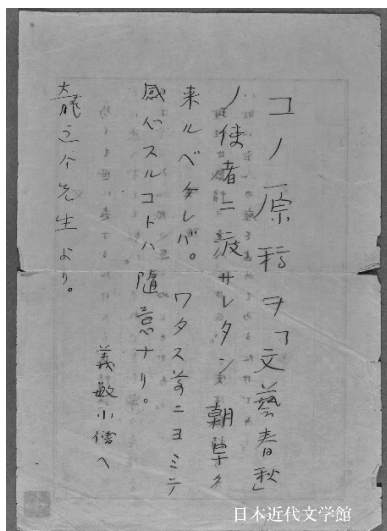 コノ原稿ヲ「文藝春秋」
ノ使者ニ渡サレタシ 朝早ク
来ルベケレバ。ワタス前ニヨミテ
感心スルコトハ随意ナリ。
義敏小僧ヘ
龍之介先生より。
日本近代文学館